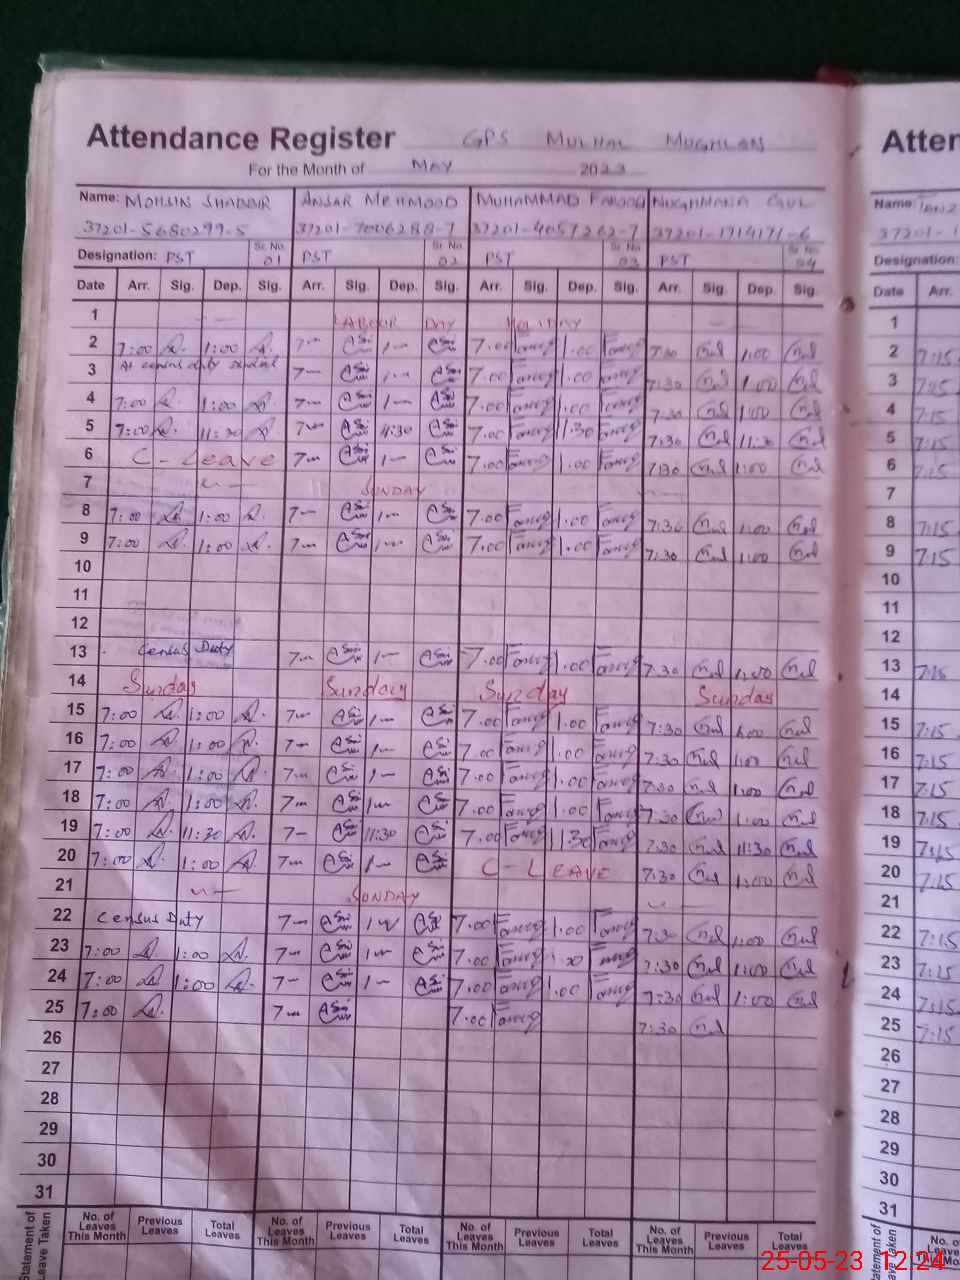 Attendance Register GPS MULHAL MUGHLAN Atten
For the Month of MAY 2023
Name: MOHSIN SHABBIR ANSAR MEHMOOD MUHAMMAD FAROOQ NUGHMANA GUL Name:
37201-5680299-5 37201-7006288-7 37201-4057262-7 37201-1714171-6
Designation: PST Sr. No. 01 PST Sr. No. 02 PST Sr. No. 03 PST Sr. No. 04 Designation:
Date Arr. Sig. Dep. Sig. Arr. Sig. Dep. Sig. Arr. Sig. Dep. Sig. Arr. Sig. Dep. Sig. Date Arr.
1 LABOUR DAY HOLIDAY 1
2 7:00 1:00 7- 1- 7.00 Farooq 1.00 Farooq 7:30 Gul 1:00 Gul 2 7:15
3 At census duty 7- 1- 7.00 Farooq 1.00 Farooq 7:30 Gul 1:00 Gul 3 7:15
4 7:00 1:00 7- 1- 7.00 Farooq 1.00 Farooq 7:30 Gul 1:00 Gul 4 7:15
5 7:00 11:30 7- 7.00 Farooq 11:30 Farooq 7:30 Gul 11:30 Gul 5 7:15
6 C-Leave 7- 1- 7.00 Farooq 1.00 Farooq 7:30 Gul 1:00 Gul 6 7:15
7 SUNDAY 7
8 7:00 1:00 7- 1- 7.00 Farooq 1.00 Farooq 7:30 Gul 1:00 Gul 8 7:15
9 7:00 1:00 7- 1- 7.00 Farooq 1.00 Farooq 7:30 Gul 1:00 Gul 9 7:15
10 10
11 11
12 12
13 Census Duty 7- 1- 7.00 Farooq 1.00 Farooq 7:30 Gul 1:00 Gul 13 7:15
14 Sunday Sunday Sunday Sunday 14
15 7:00 1:00 7- 1- 7.00 Farooq 1.00 Farooq 7:30 Gul 1:00 Gul 15 7:15
16 7:00 1:00 7- 1- 7.00 Farooq 1.00 Farooq 7:30 Gul 1:00 Gul 16 7:15
17 7:00 1:00 7- 1- 7.00 Farooq 1.00 Farooq 7:30 Gul 1:00 Gul 17 7:15
18 7:00 1:00 7- 1- 7.00 Farooq 1.00 Farooq 7:30 Gul 1:00 Gul 18 7:15
19 7:00 11:30 7- 11:30 7.00 Farooq 11:30 Farooq 7:30 Gul 11:30 Gul 19 7:15
20 7:00 1:00 7- 1- C-LEAVE 7:30 Gul 1:00 Gul 20 7:15
21 SUNDAY 21
22 Census Duty 7- 1- 7.00 Farooq 1.00 Farooq 7:30 Gul 1:00 Gul 22 7:15
23 7:00 1:00 7- 1- 7.00 Farooq 1.00 Farooq 7:30 Gul 1:00 Gul 23 7:15
24 7:00 1:00 7- 1- 7.00 Farooq 1.00 Farooq 7:30 Gul 1:00 Gul 24 7:15
25 7:00 7- 7.00 Farooq 7:30 Gul 25 7:15
26 26
27 27
28 28
29 29
30 30
31 31
Statement of Leave Taken No. of Leaves This Month Previous Leaves Total Leaves No. of Leaves This Month Previous Leaves Total Leaves No. of Leaves This Month Previous Leaves Total Leaves No. of Leaves This Month Previous Leaves Total Leaves
25-05-23 12:24